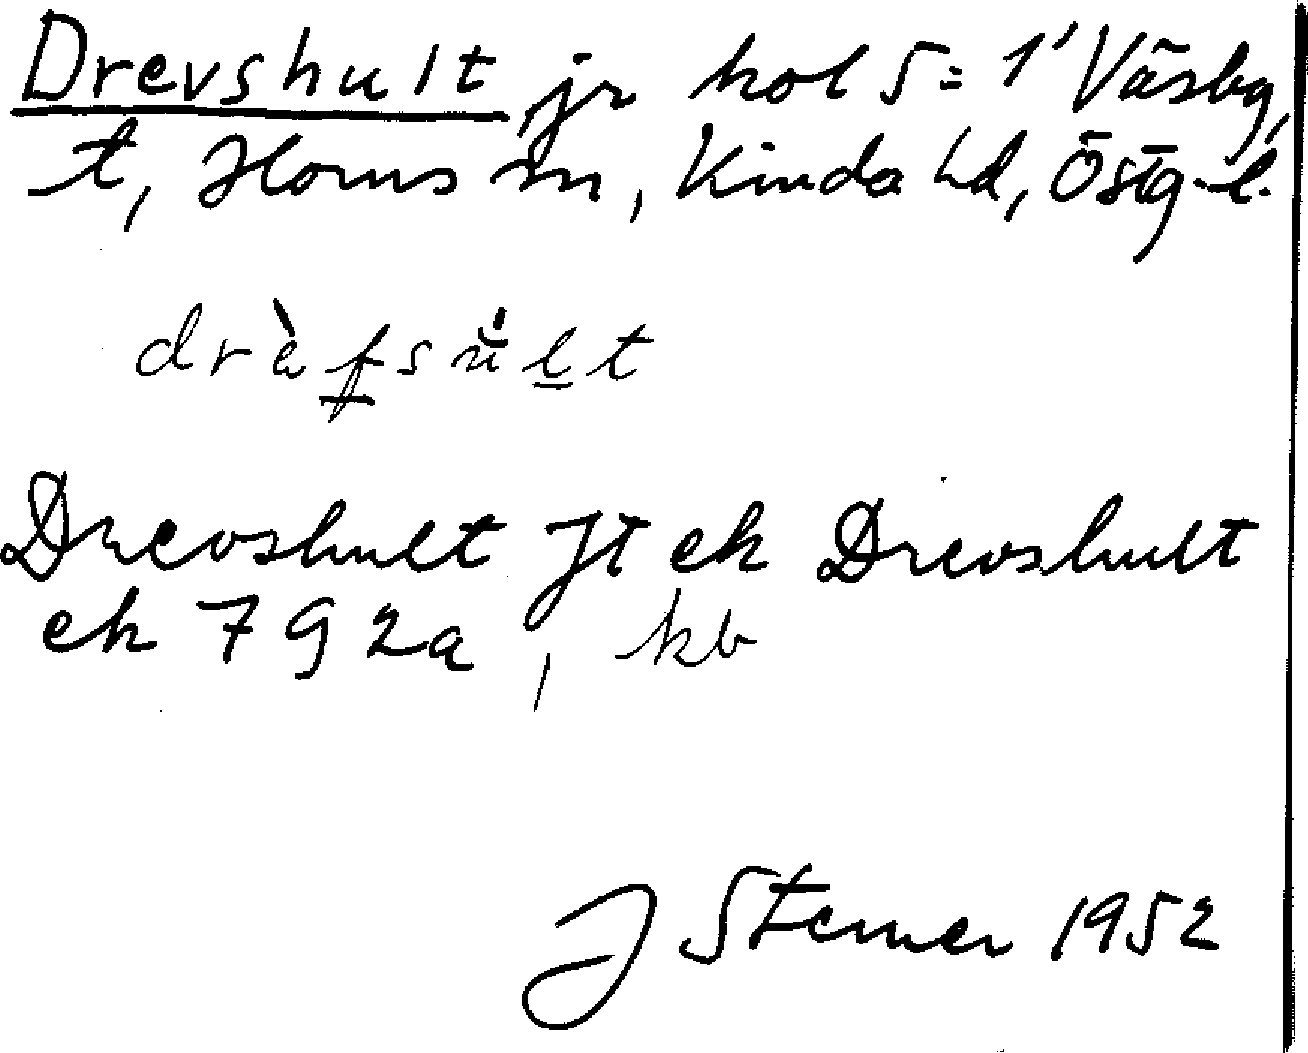 Drevshult jr kol 5 = 1' Väsby
t, Horns sn, Kinda hd, Östg. l.
drèfsu̇lt
Drevshult Jt ek Drevshult
ek 792a, kb
J Sterner 1952